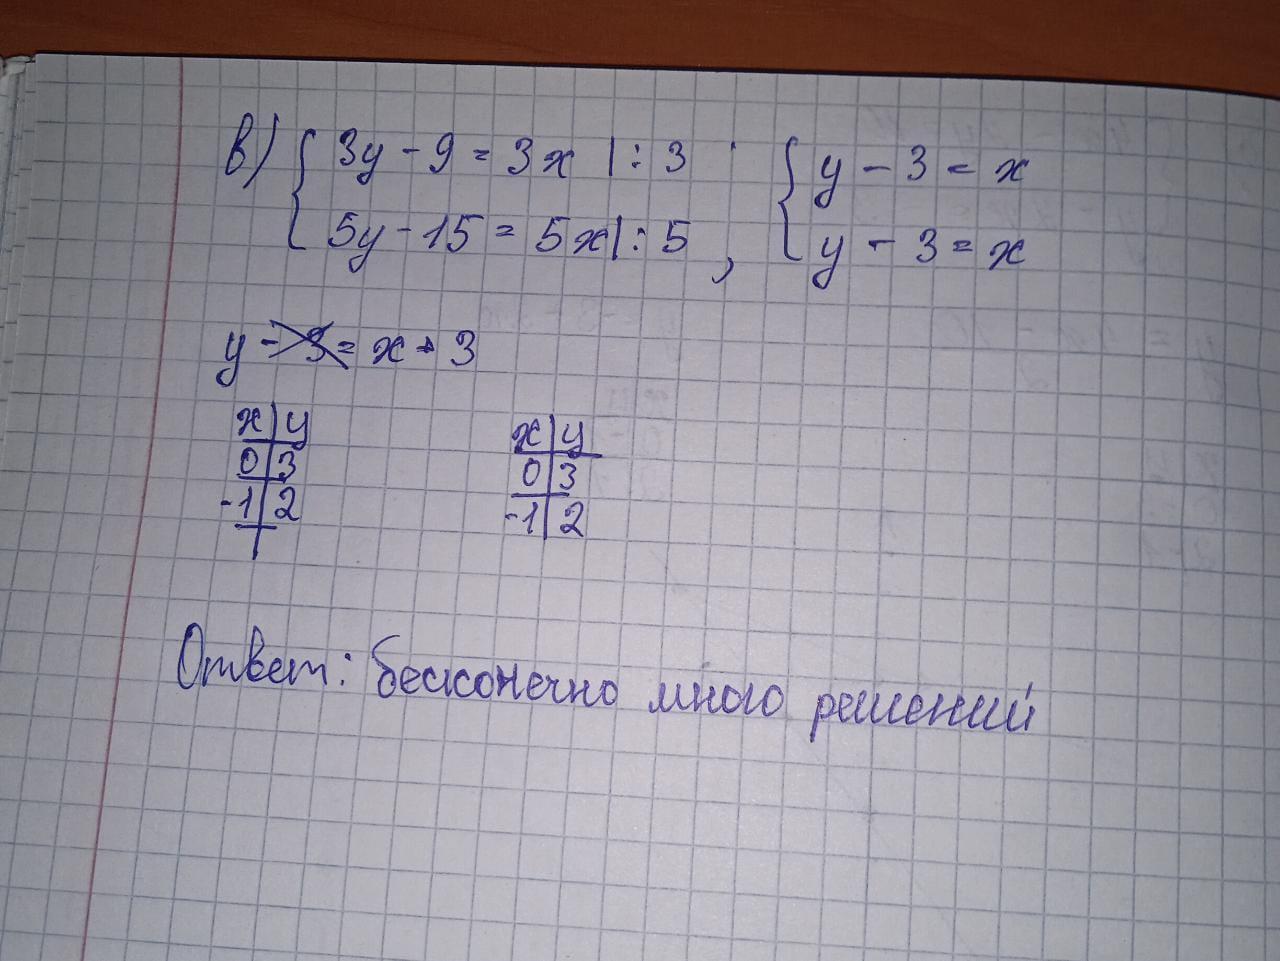 в) { 3y - 9 = 3x |: 3 ; { y - 3 = x
5y - 15 = 5x |: 5 , y - 3 = x
y - 3 = x + 3
x | y x | y
0 | 3 0 | 3
-1 | 2 -1 | 2
Ответ: бесконечно много решений